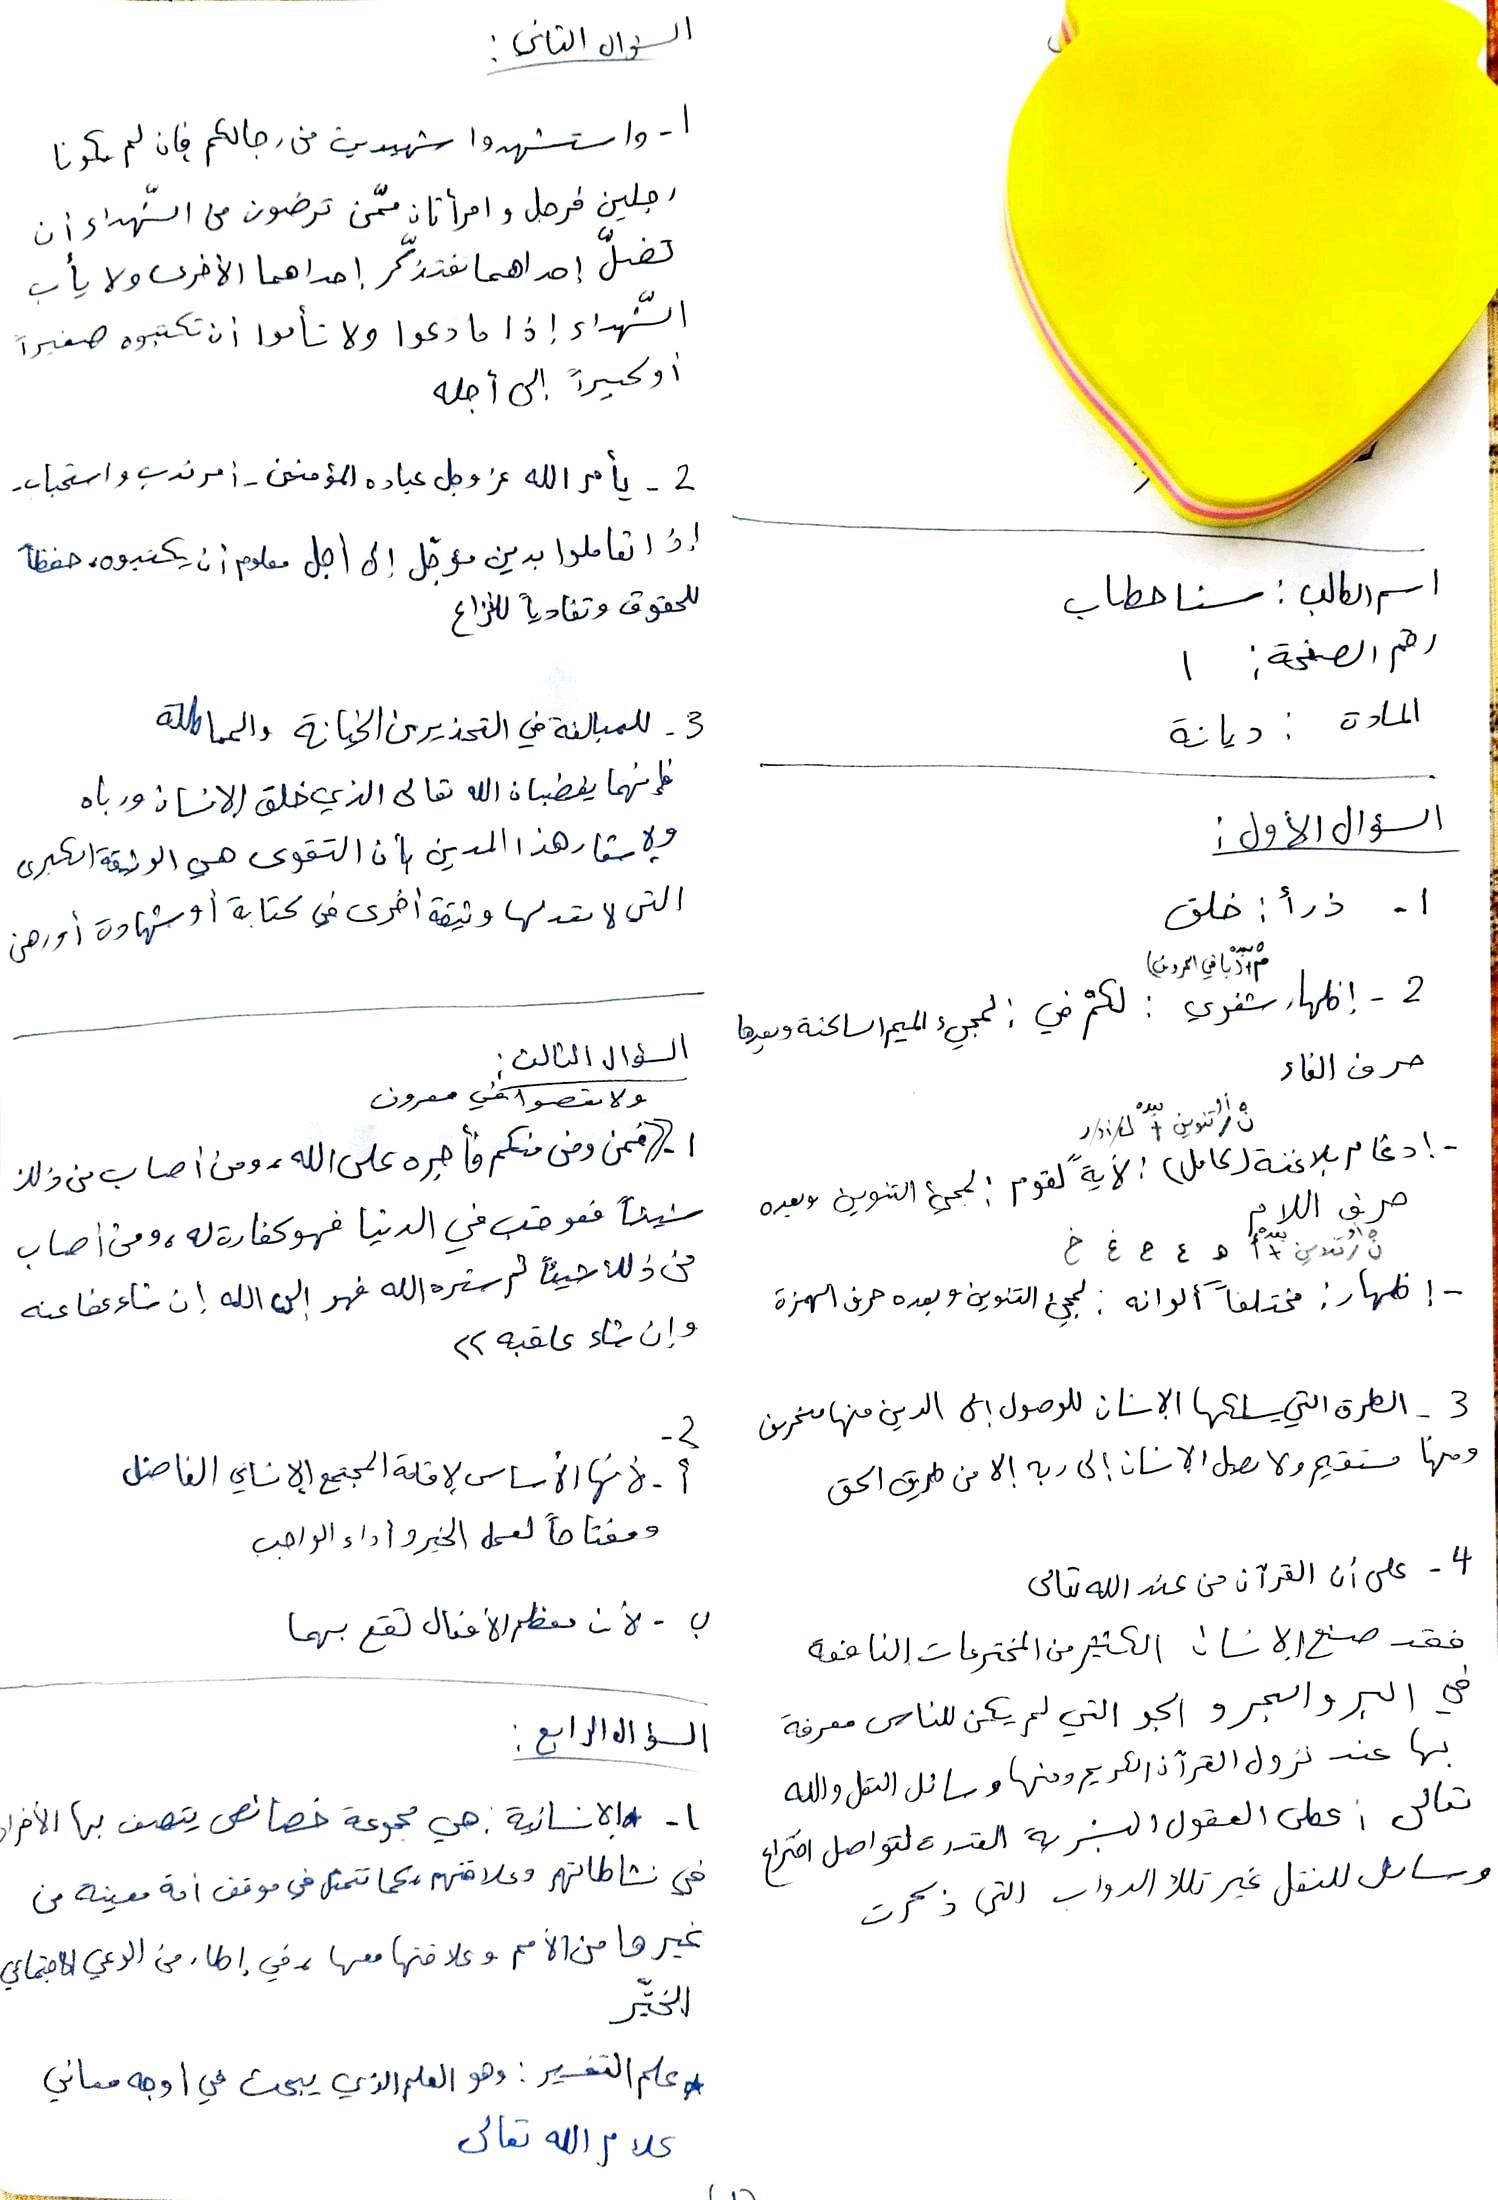 اسم الطالب : سنا حطاب
رقم الصفحة : ١
المادة : ديانة
السؤال الأول :
١- ذرأ : خلق
2- إظهار شفوي : لكمْ في : لمجيء الميم الساكنة وبعدها
حرف الفاء
- إدغام بلاغنة (كامل) : لأيةً لقوم : لمجيء التنوين وبعده
حرف اللام
ن أو تنوين + بعده أ ه ع ح غ خ
- إظهار : مختلفاً ألوانه : لمجيء التنوين وبعده حرف الهمزة
3- الطرق التي يسلكها الإنسان للوصول إلى الدين منها منحرف
ومنها مستقيم ولا يصل الإنسان إلى ربه إلا من طريق الحق
4- على أن القرآن من عند الله تعالى
فقد صنع الإنسان الكثير من المخترعات النافعة
في البر والبحر و الجو التي لم يكن للناس معرفة
بها عند نزول القرآن الكريم ومنها وسائل النقل والله
تعالى أعطى العقول البشرية القدرة لتواصل اختراع
وسائل للنقل غير تلك الدواب التي ذكرت
السؤال الثاني :
١- واستشهدوا شهيدين من رجالكم فإن لم يكونا
رجلين فرجل و امرأتان ممّن ترضون من الشّهداء أن
تضلّ إحداهما فتذكّر إحداهما الأخرى ولا يأب
الشّهداء إذا ما دعوا ولا تسأموا أن تكتبوه صغيراً
أو كبيراً إلى أجله
2- يأمر الله عز وجل عباده المؤمنين - أمر ندب واستحباب -
إذا تعاملوا بدين مؤجّل إلى أجل معلوم أن يكتبوه، حفظاً
للحقوق وتفادياً للنزاع
3- للمبالغة في التحذير من الخيانة والمماطلة
فإنهما يغضبان الله تعالى الذي خلق الإنسان ورباه
ولإشعار هذا المدين بأن التقوى هي الوثيقة الكبرى
التي لا تعدلها وثيقة أخرى في كتابة أو شهادة أو رهن
السؤال الثالث :
ولا تعصوا في معروف
١- ((فمن وفى منكم فأجره على الله، ومن أصاب من ذلك
شيئاً فعوقب في الدنيا فهو كفارة له، ومن أصاب
من ذلك شيئاً ثم ستره الله فهو إلى الله إن شاء عفا عنه
وإن شاء عاقبه ))
2-
أ- لأنها الأساس لإقامة المجتمع الإنساني الفاضل
ومفتاحاً لعمل الخير و أداء الواجب
ب- لأن معظم الأفعال تقع بهما
السؤال الرابع :
١- * الإنسانية : هي مجموعة خصائص يتصف بها الأفراد
في نشاطاتهم وعلاقتهم، كما تتمثل في موقف أمة معينة من
غيرها من الأمم وعلاقتها معها، في إطار من الوعي الاجتماعي
الخيّر
* علم التفسير : وهو العلم الذي يبحث في أوجه معاني
كلام الله تعالى
(١)